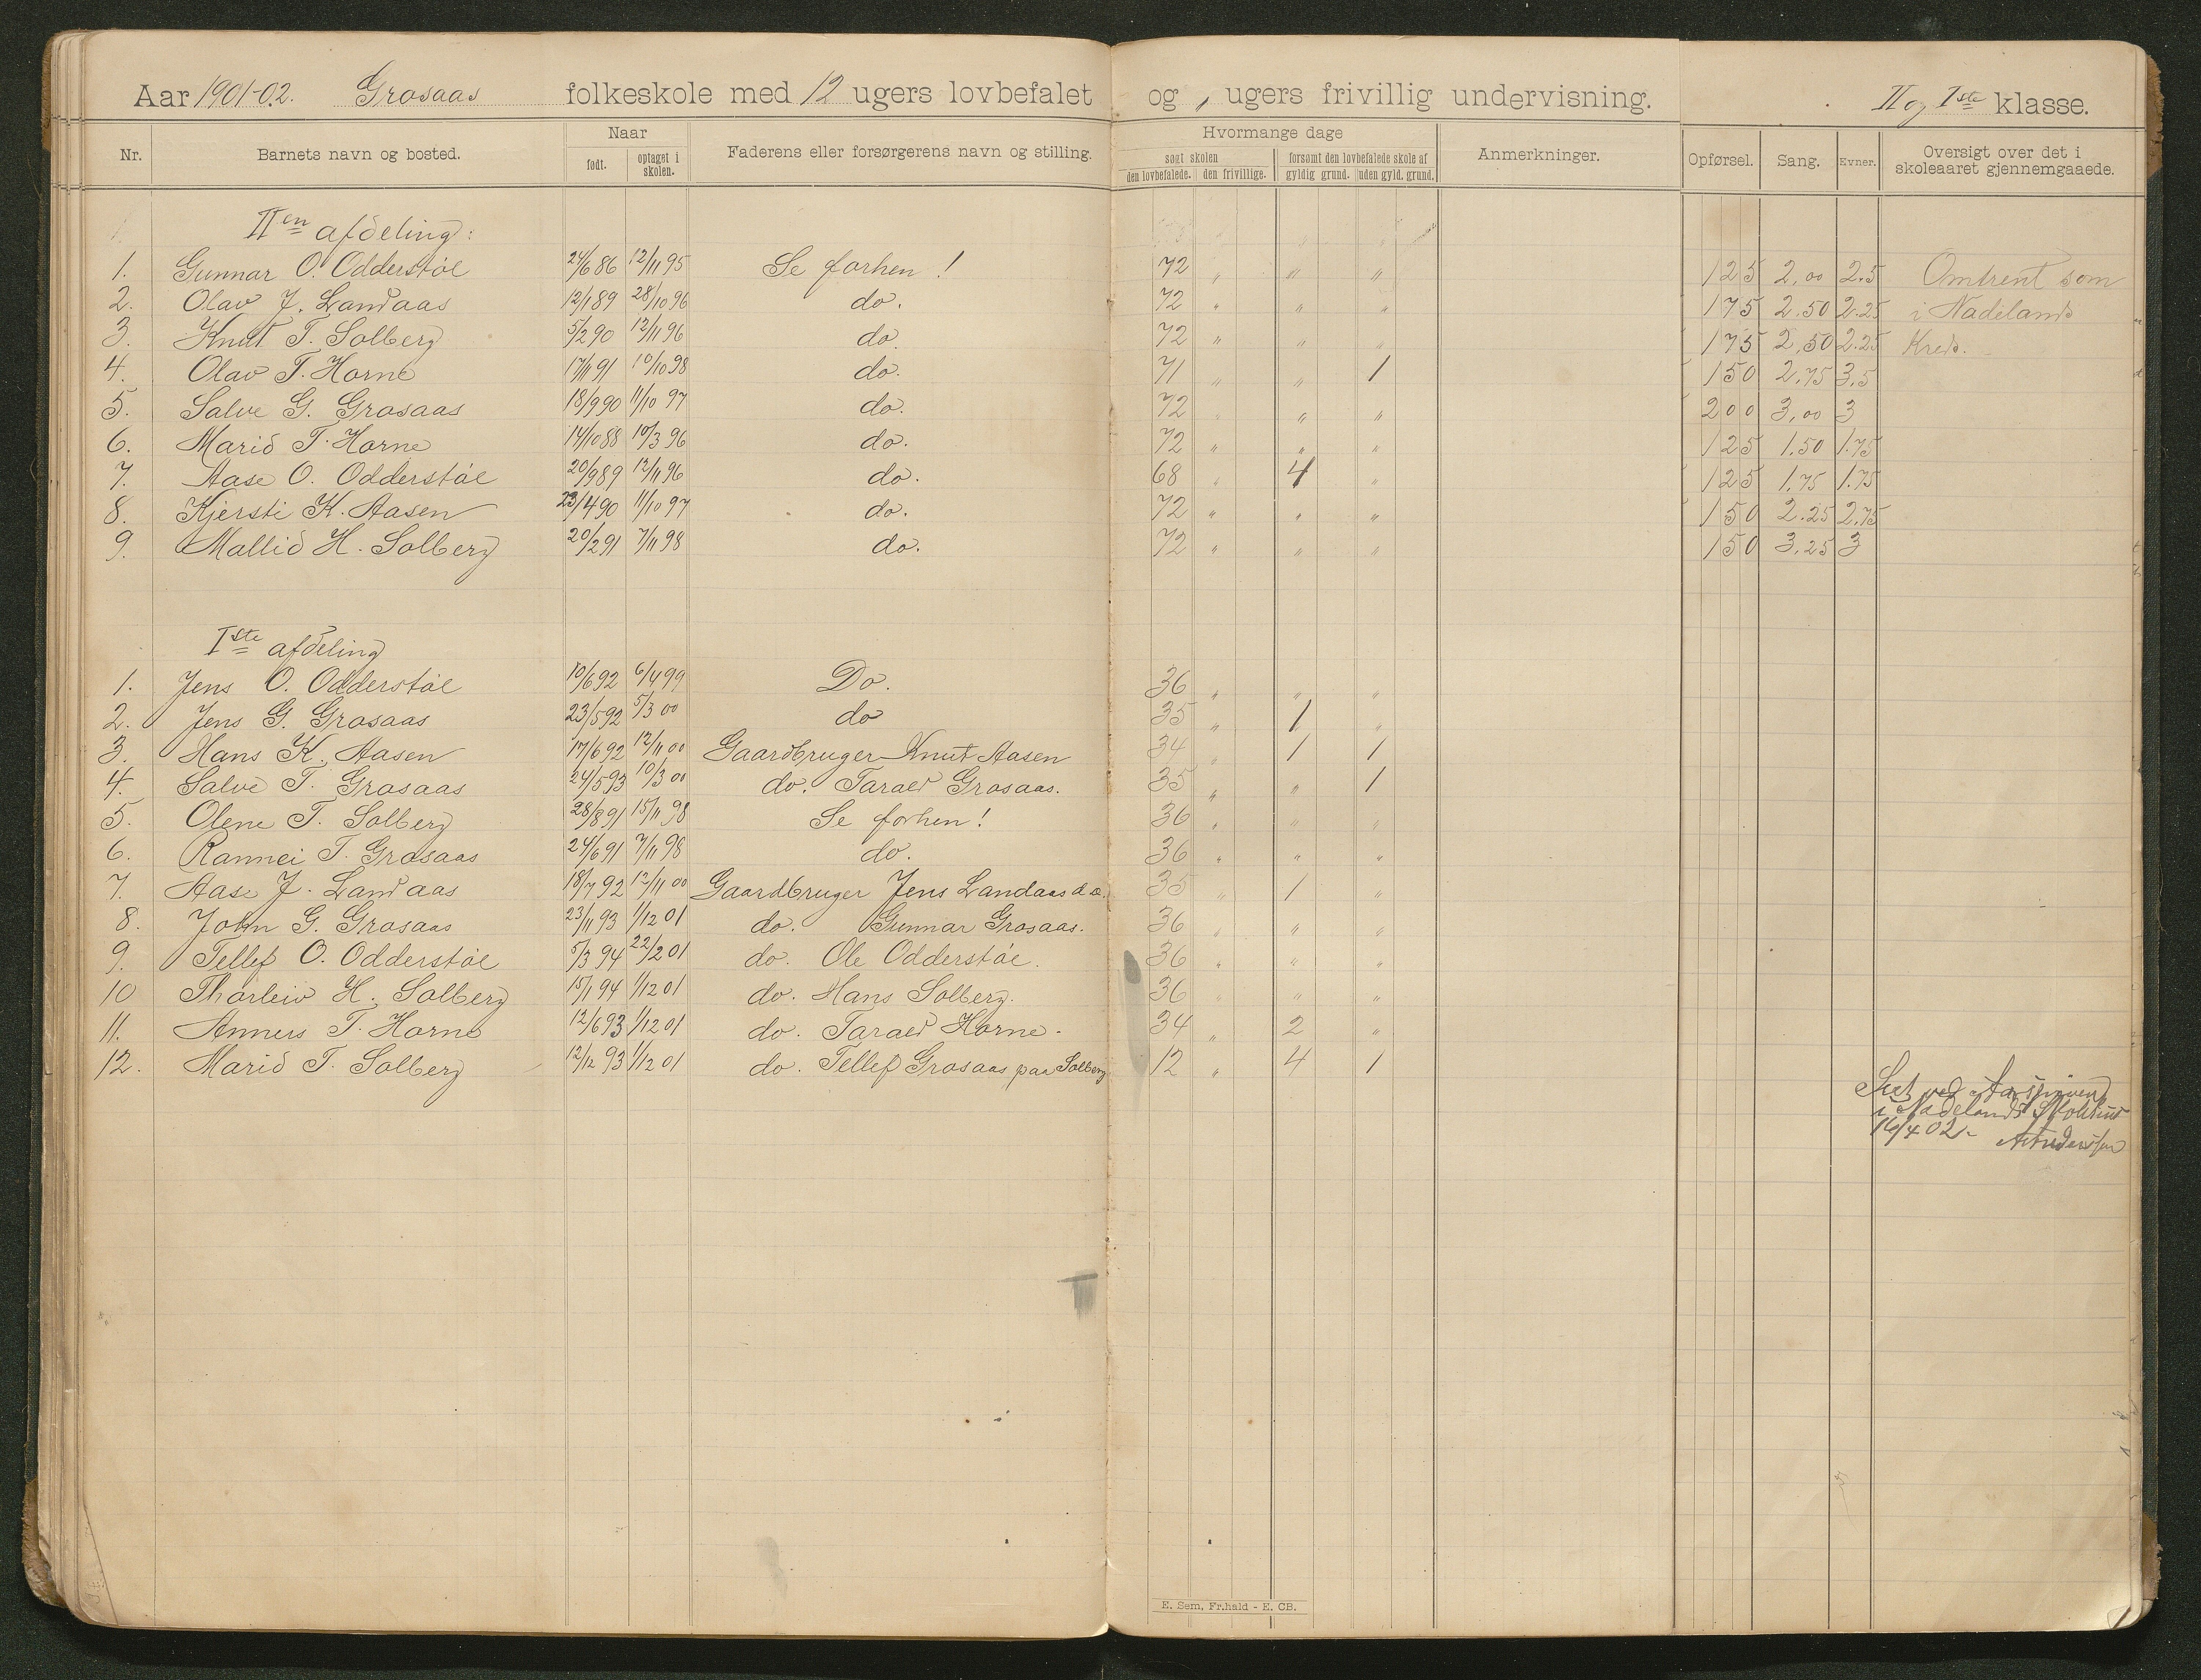 Aar 1901-02. Grosaas folkeskole med 12 ugers lovbefalet og „ ugers frivillig undervisning. II og Iste klasse.
Nr. Barnets navn og bosted. Naar født. optaget i skolen. Faderens eller forsørgerens navn og stilling. Hvormange dage søgt skolen den lovbefalede. den frivillige. forsømt den lovbefalede skole af gyldig grund. uden gyld. grund. Anmerkninger. Opførsel. Sang. Evner. Oversigt over det i skoleaaret gjennemgaaede.
IIen afdeling:
1. Gunnar O. Odderstøl 24/6 86 12/11 95 Se forhen! 72 „ „ „ 125 2,00 2.5 Omtrent som
2. Olav J. Landaas 12/1 89 28/10 96 do. 72 „ „ „ 175 2.50 2.25 i Nadelands
3. Knut T. Solberg 5/2 90 12/11 96 do. 72 „ „ „ 175 2,50 2.25 Kreds.
4. Olav T. Horne 17/11 91 10/10 98 do. 71 „ „ 1 150 2.75 3.5
5. Salve G. Grosaas 18/9 90 11/10 97 do. 72 „ „ „ 200 3,00 3
6. Marid T. Horne 14/10 88 10/3 96 do. 72 „ „ „ 125 1.50 1.75
7. Aase O. Odderstøl 20/9 89 12/11 96 do. 68 „ 4 „ 125 1.75 1.75
8. Kjersti K. Aasen 23/4 90 11/10 97 do. 72 „ „ „ 150 2.25 2.75
9. Mallid H. Solberg 20/2 91 7/11 98 do. 72 „ „ „ 150 3.25 3
Iste afdeling
1. Jens O. Odderstøl 10/6 92 6/4 99 Do. 36 „ „ „
2. Jens G. Grosaas 23/5 92 5/3 00 do 35 „ 1 „
3. Hans K. Aasen 17/6 92 12/11 00 Gaardbruger Knut Aasen 34 „ 1 1
4. Salve T. Grosaas 24/5 93 10/3 00 do. Tarald Grosaas. 35 „ „ 1
5. Olene T. Solberg 28/8 91 15/11 98 Se forhen! 36 „ „ „
6. Rannei T. Grosaas 24/6 91 7/11 98 do. 36 „ „ „
7. Aase J. Landaas 18/7 92 12/11 00 Gaardbruger Jens Landaas d.æ. 35 „ 1 „
8. John G. Grosaas 23/11 93 1/12 01 do. Gunnar Grosaas. 36 „ „ „
9. Tellef O. Odderstøl 5/3 94 22/2 01 do. Ole Odderstøl. 36 „ „ „
10 Thorleiv H. Solberg 15/1 94 1/12 01 do. Hans Solberg. 36 „ „ „
11. Anners T. Horne 12/6 93 1/12 01 do. Tarald Horne. 34 „ 2 „
12. Marid T. Solberg 12/12 93 1/12 01 do. Tellef Grosaas paa Solberg 12 „ 4 1
Set ved Aarsprøven
i Nadelands Skolehus
16/4 02.
E. Sem, Fr.hald - E. CB.